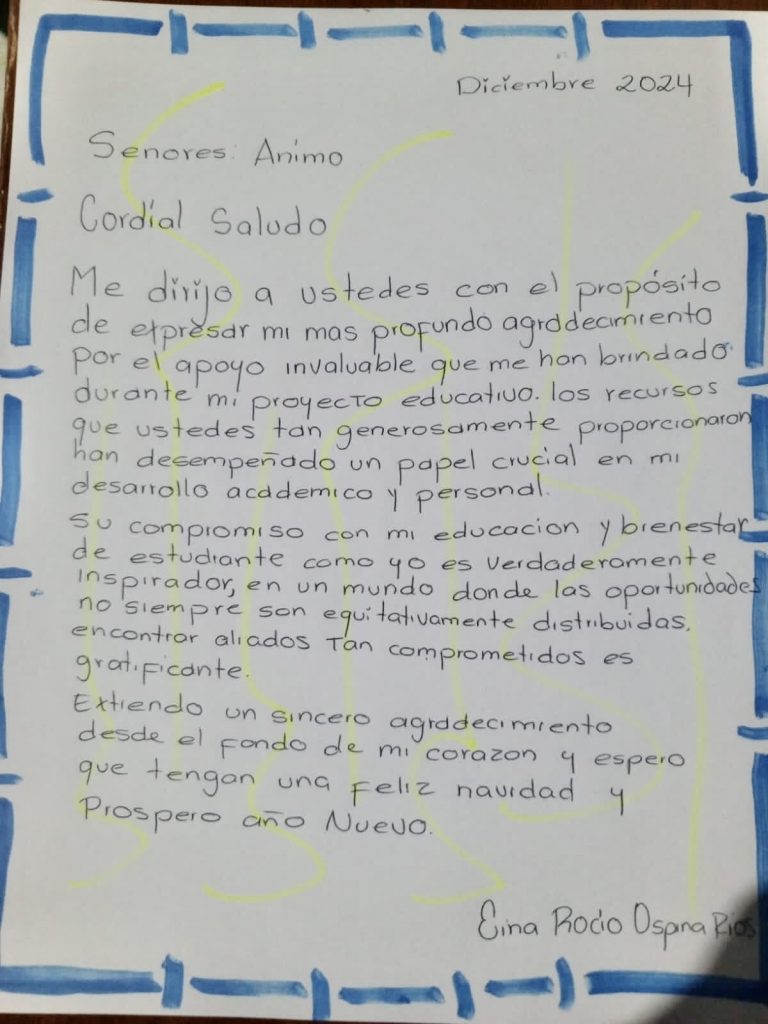 Diciembre 2024
Senores: Animo
Cordial Saludo
Me dirijo a ustedes con el propósito
de expresar mi mas profundo agradecimiento
por el apoyo invaluable que me han brindado
durante mi proyecto educativo. los recursos
que ustedes tan generosamente proporcionaron
han desempeñado un papel crucial en mi
desarrollo academico y personal.
Su compromiso con mi educacion y bienestar
de estudiante como yo es verdaderamente
inspirador, en un mundo donde las oportunidades
no siempre son equitativamente distribuidas,
encontrar aliados tan comprometidos es
gratificante.
Extiendo un sincero agradecimiento
desde el fondo de mi corazon y espero
que tengan una Feliz navidad y
Prospero año Nuevo.
Eina Rocio Ospina Rios